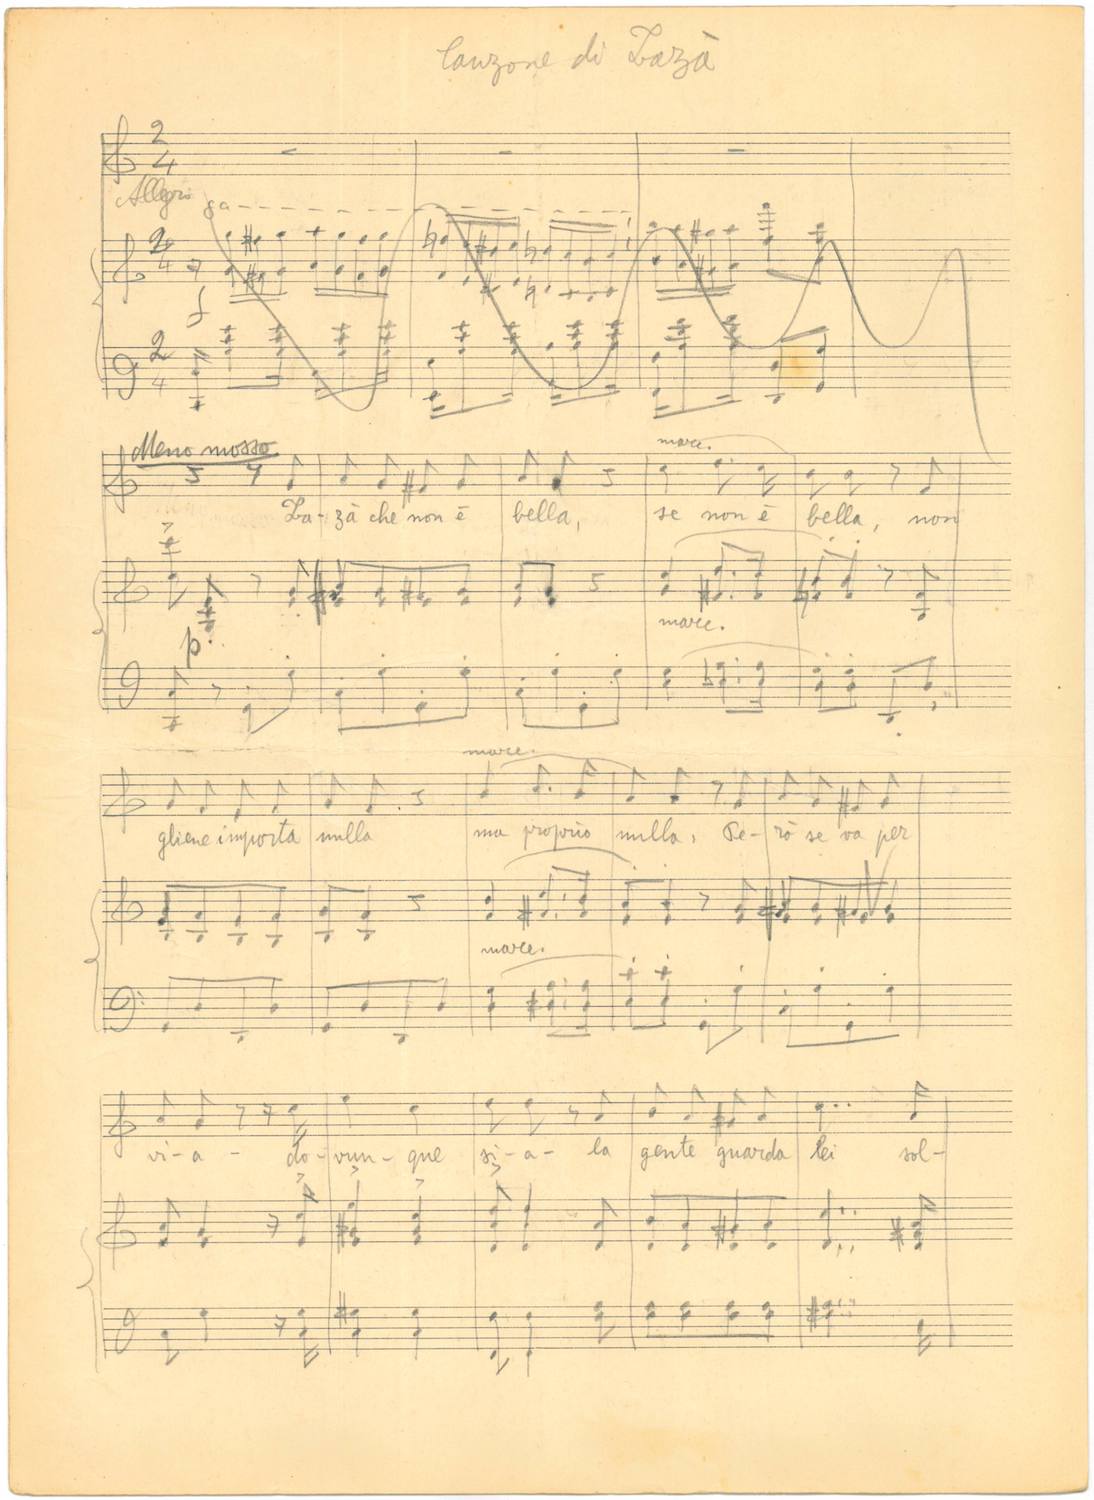 Canzone di Zazà
2
4
Allegro 8a
2
4
f
2
4
Meno mosso
marc.
Za-zà che non è bella, se non è bella, non
marc.
p.
marc.
gliene importa nulla ma proprio nulla, Pe-rò se va per
marc.
vi-a- do-vun-que si-a- la gente guarda lei sol-